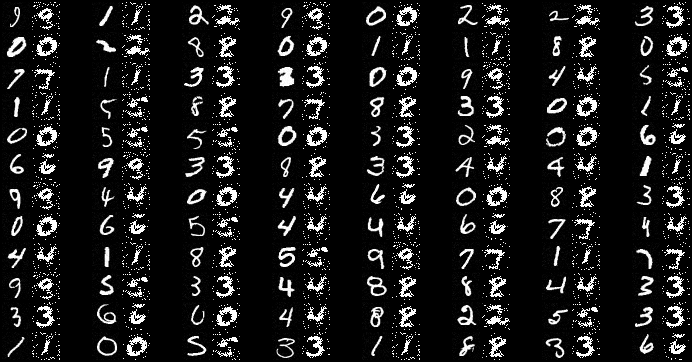 9 9 1 1 2 2 9 9 0 0 2 2 2 2 3 3
0 0 2 2 8 8 0 0 1 1 1 1 8 8 0 0
7 7 1 1 3 3 3 3 0 0 9 9 4 4 5 5
1 1 5 5 8 8 7 7 8 8 3 3 0 0 1 1
0 0 5 5 5 5 0 0 3 3 2 2 0 0 6 6
6 6 9 9 3 3 8 8 3 3 4 4 4 4 1 1
9 9 4 4 0 0 4 4 6 6 0 0 8 8 3 3
0 0 6 6 5 5 4 4 4 4 6 6 7 7 4 4
4 4 1 1 8 8 5 5 9 9 7 7 1 1 7 7
9 9 5 5 3 3 4 4 8 8 8 8 4 4 3 3
3 3 6 6 0 0 4 4 8 8 2 2 5 5 3 3
1 1 0 0 5 5 3 3 1 1 8 8 3 3 6 6